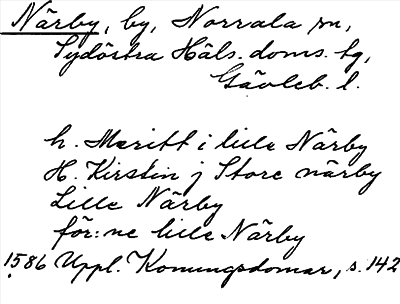 Närby, by, Norrala sn,
Sydöstra Häls. doms. tg,
Gävleb. l.
h. Maritt i lille Närby
H. Kirstin j Store närby
Lille Närby
för:ne lille Närby
1586 Uppl. Konungsdomar, s. 142